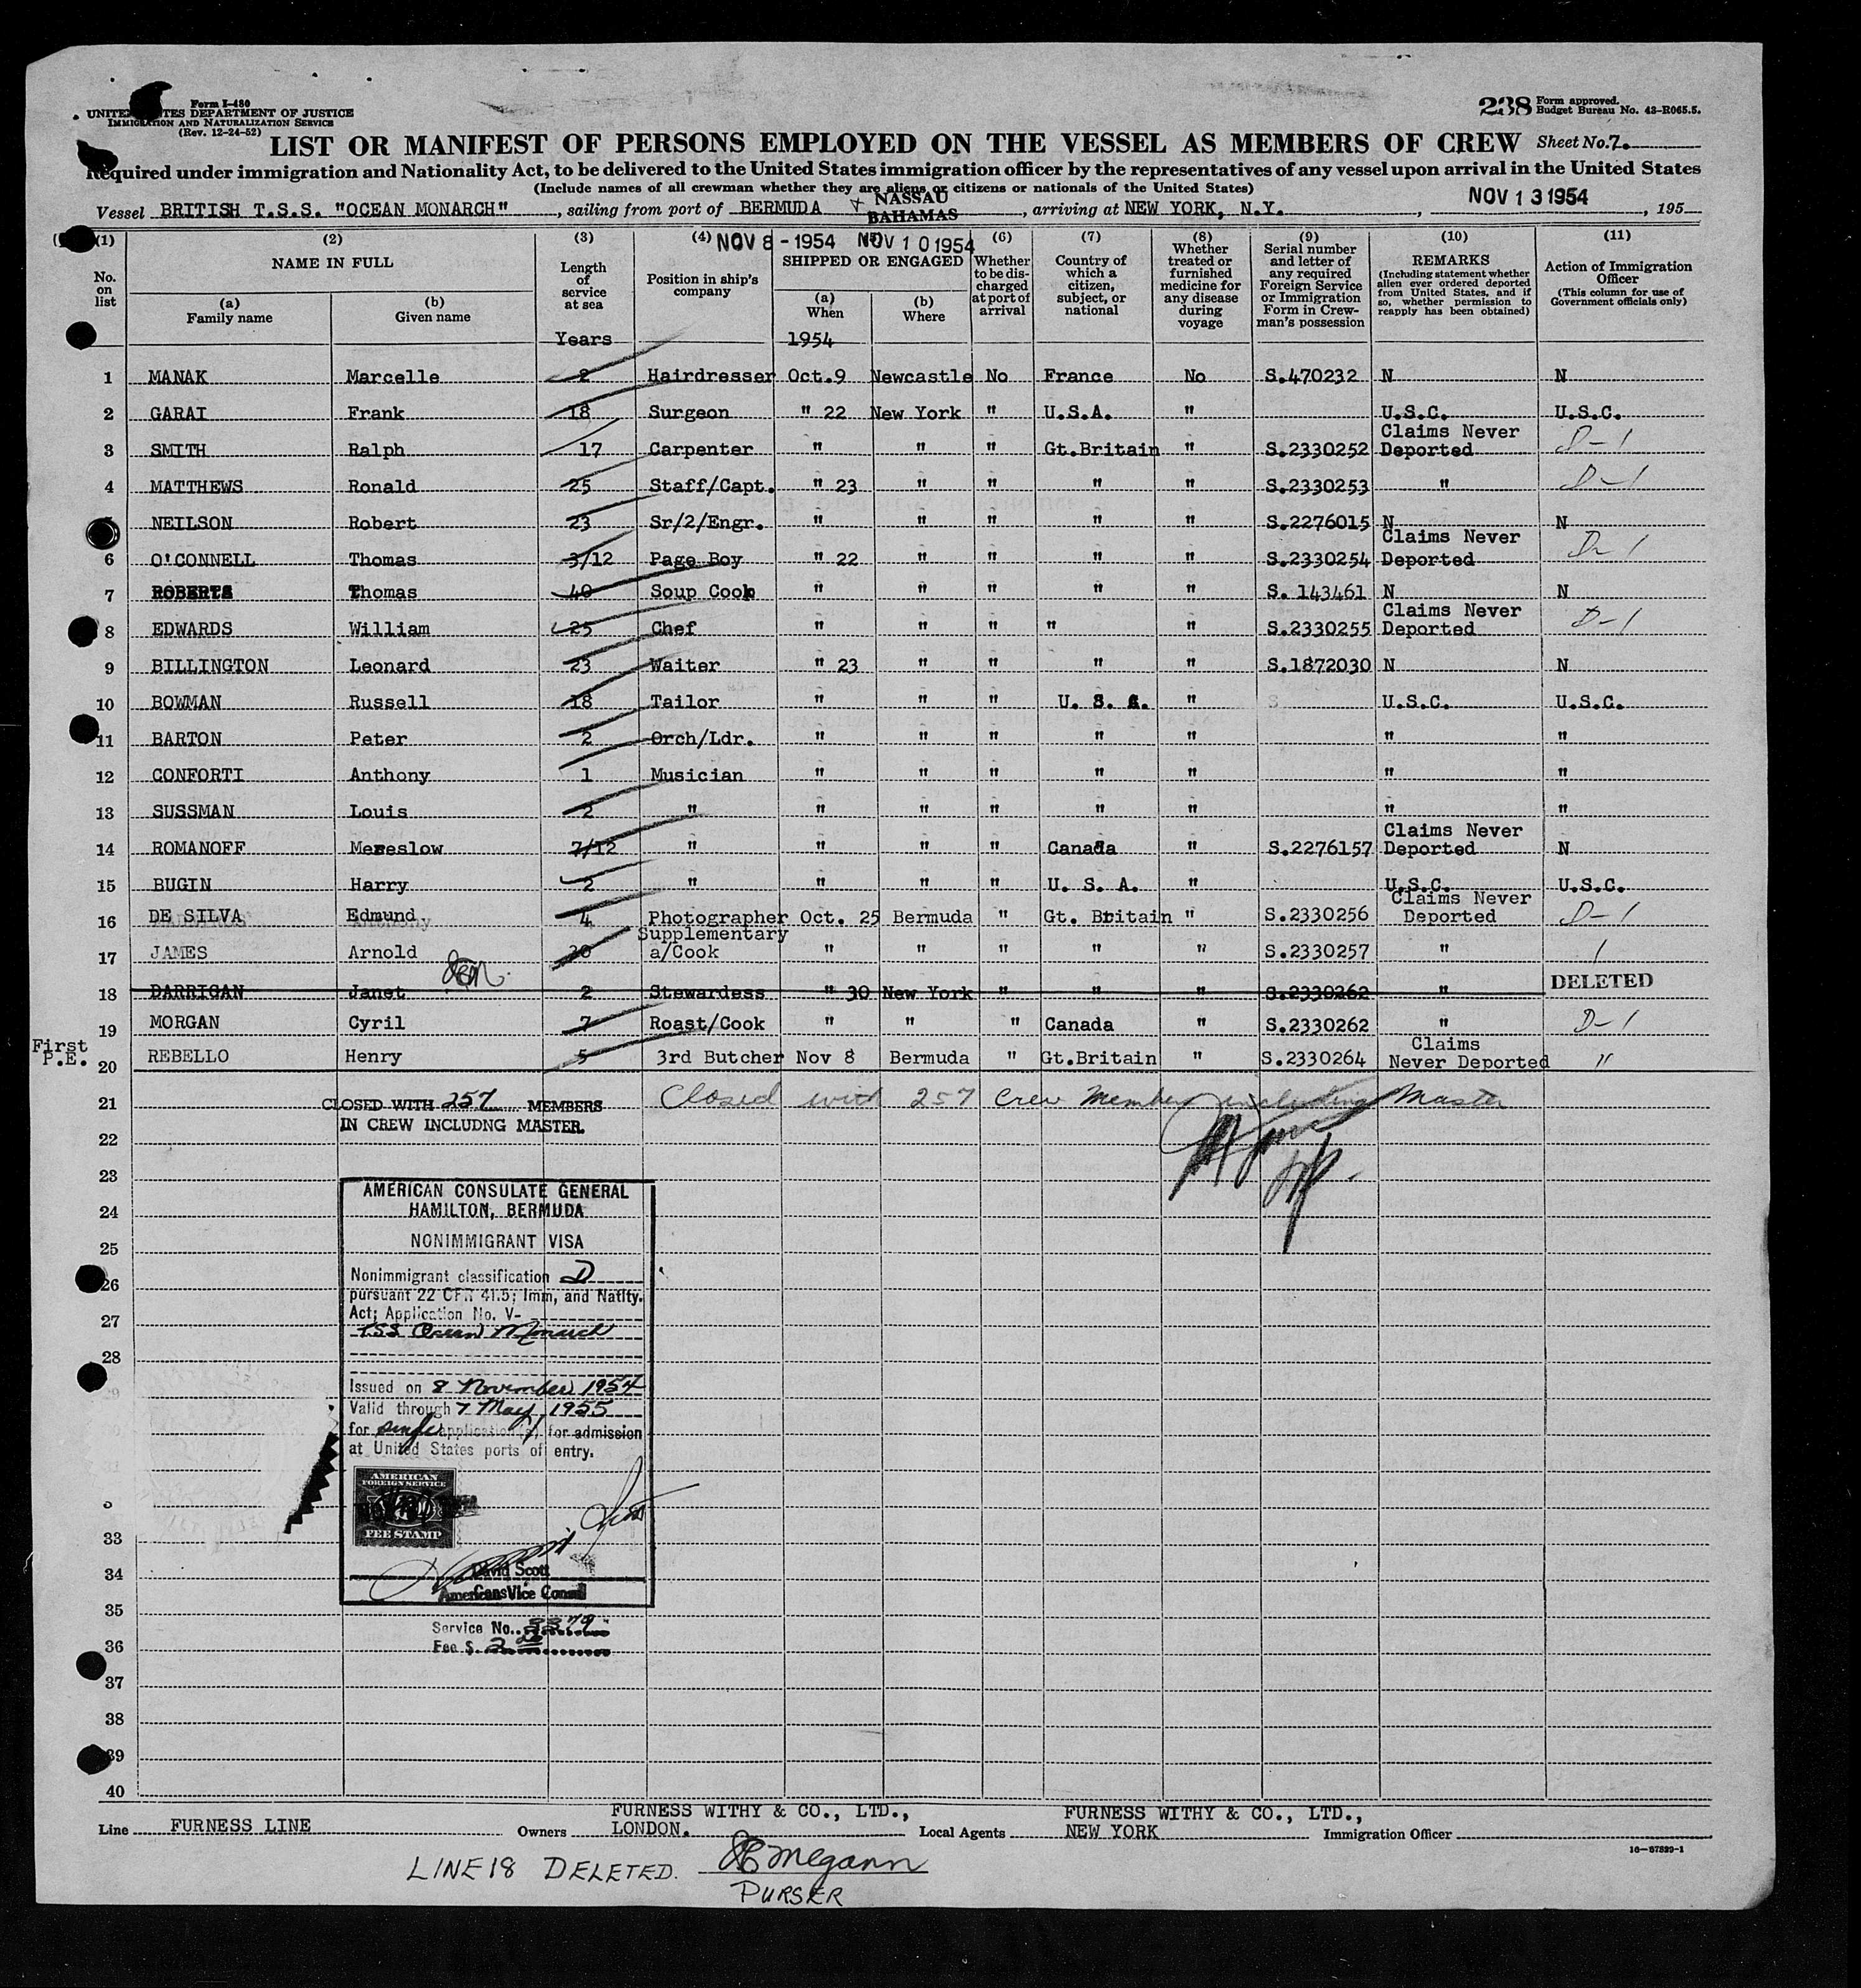 Form I-480
UNITED STATES DEPARTMENT OF JUSTICE
IMMIGRATION AND NATURALIZATION SERVICE
(Rev. 12-24-52)
238 Form approved.
Budget Bureau No. 43-R065.5.
LIST OR MANIFEST OF PERSONS EMPLOYED ON THE VESSEL AS MEMBERS OF CREW Sheet No. 7.
Required under immigration and Nationality Act, to be delivered to the United States immigration officer by the representatives of any vessel upon arrival in the United States
(Include names of all crewman whether they are aliens or citizens or nationals of the United States)
Vessel BRITISH T.S.S. "OCEAN MONARCH", sailing from port of BERMUDA + NASSAU BAHAMAS, arriving at NEW YORK, N.Y., NOV 13 1954, 195
NOV 8 - 1954 NOV 10 1954
(1) No. on list
(2) NAME IN FULL
(a) Family name
(b) Given name
(3) Length of service at sea
(4) Position in ship's company
SHIPPED OR ENGAGED
(a) When
(b) Where
(6) Whether to be discharged at port of arrival
(7) Country of which a citizen, subject, or national
(8) Whether treated or furnished medicine for any disease during voyage
(9) Serial number and letter of any required Foreign Service or Immigration Form in Crewman's possession
(10) REMARKS (Including statement whether alien ever ordered deported from United States, and if so, whether permission to reapply has been obtained)
(11) Action of Immigration Officer (This column for use of Government officials only)
Years 1954
1 MANAK Marcelle 2 Hairdresser Oct.9 Newcastle No France No S.470232 N N
2 GARAI Frank 18 Surgeon " 22 New York " U.S.A. " U.S.C. U.S.C.
3 SMITH Ralph 17 Carpenter " " " Gt.Britain " S.2330252 Claims Never Deported D-1
4 MATTHEWS Ronald 25 Staff/Capt. " 23 " " " " S.2330253 " D-1
5 NEILSON Robert 23 Sr/2/Engr. " " " " " S.2276015 N N
6 O'CONNELL Thomas 3/12 Page Boy " 22 " " " " S.2330254 Claims Never Deported D-1
7 ROBERTS Thomas 40 Soup Cook " " " " " S. 143461 N N
8 EDWARDS William 25 Chef " " " " " S.2330255 Claims Never Deported D-1
9 BILLINGTON Leonard 23 Waiter " 23 " " " " S.1872030 N N
10 BOWMAN Russell 18 Tailor " " " U. S. A. " U.S.C. U.S.C.
11 BARTON Peter 2 Orch/Ldr. " " " " " " "
12 CONFORTI Anthony 1 Musician " " " " " " "
13 SUSSMAN Louis 2 " " " " " " " "
14 ROMANOFF Meseslow 7/12 " " " " Canada " S.2276157 Claims Never Deported N
15 BUGIN Harry 2 " " " " U. S. A. " U.S.C. U.S.C.
16 DE SILVA Edmund 4 Photographer Oct. 25 Bermuda " Gt. Britain " S.2330256 Claims Never Deported D-1
17 JAMES Arnold 20 Supplementary a/Cook " " " " " S.2330257 " 1
18 DARRIGAN Janet 2 Stewardess " 30 New York " " " S.2330262 " DELETED
19 MORGAN Cyril 7 Roast/Cook " " " Canada " S.2330262 " D-1
First P.E. 20 REBELLO Henry 5 3rd Butcher Nov 8 Bermuda " Gt.Britain " S.2330264 Claims Never Deported "
21 CLOSED WITH 257 MEMBERS Closed with 257 Crew Members including Master
IN CREW INCLUDNG MASTER.
22
23
AMERICAN CONSULATE GENERAL
24 HAMILTON, BERMUDA
25 NONIMMIGRANT VISA
Nonimmigrant classification D
26 pursuant 22 CFR 41.5; Imm, and Natlty.
27 Act; Application No. V-
TSS Ocean Monarch
28
Issued on 8 November 1954
Valid through 7 May 1955
for single application(s) for admission
at United States ports of entry.
AMERICAN
FOREIGN SERVICE
FEE STAMP
33
34 David Scott
American Vice Consul
35
Service No. 3379
36 Fee $ 2
37
38
39
40
Line FURNESS LINE Owners FURNESS WITHY & CO., LTD., LONDON. Local Agents FURNESS WITHY & CO., LTD., NEW YORK Immigration Officer
16-67899-1
LINE 18 DELETED. Megann
PURSER